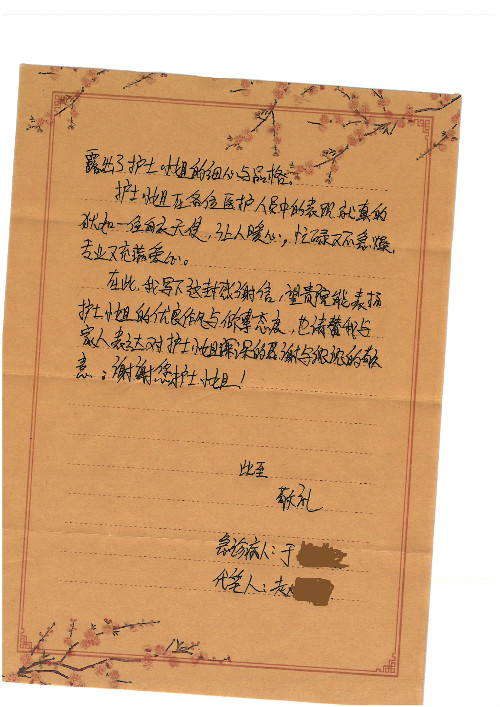 露出了护士小姐的细心与品格。
护士小姐在各位医护人员中的表现就真的
犹如一位白衣天使,让人暖心,忙碌又不急燥,
专业又充满爱心。
在此,我写下这封感谢信,望贵院能表扬
护士小姐的优良作风与做事态度,也请替我与
家人表达对护士小姐深深的感谢与浓浓的敬
意。谢谢您护士小姐!
此至
敬礼
急诊病人:于
代笔人: